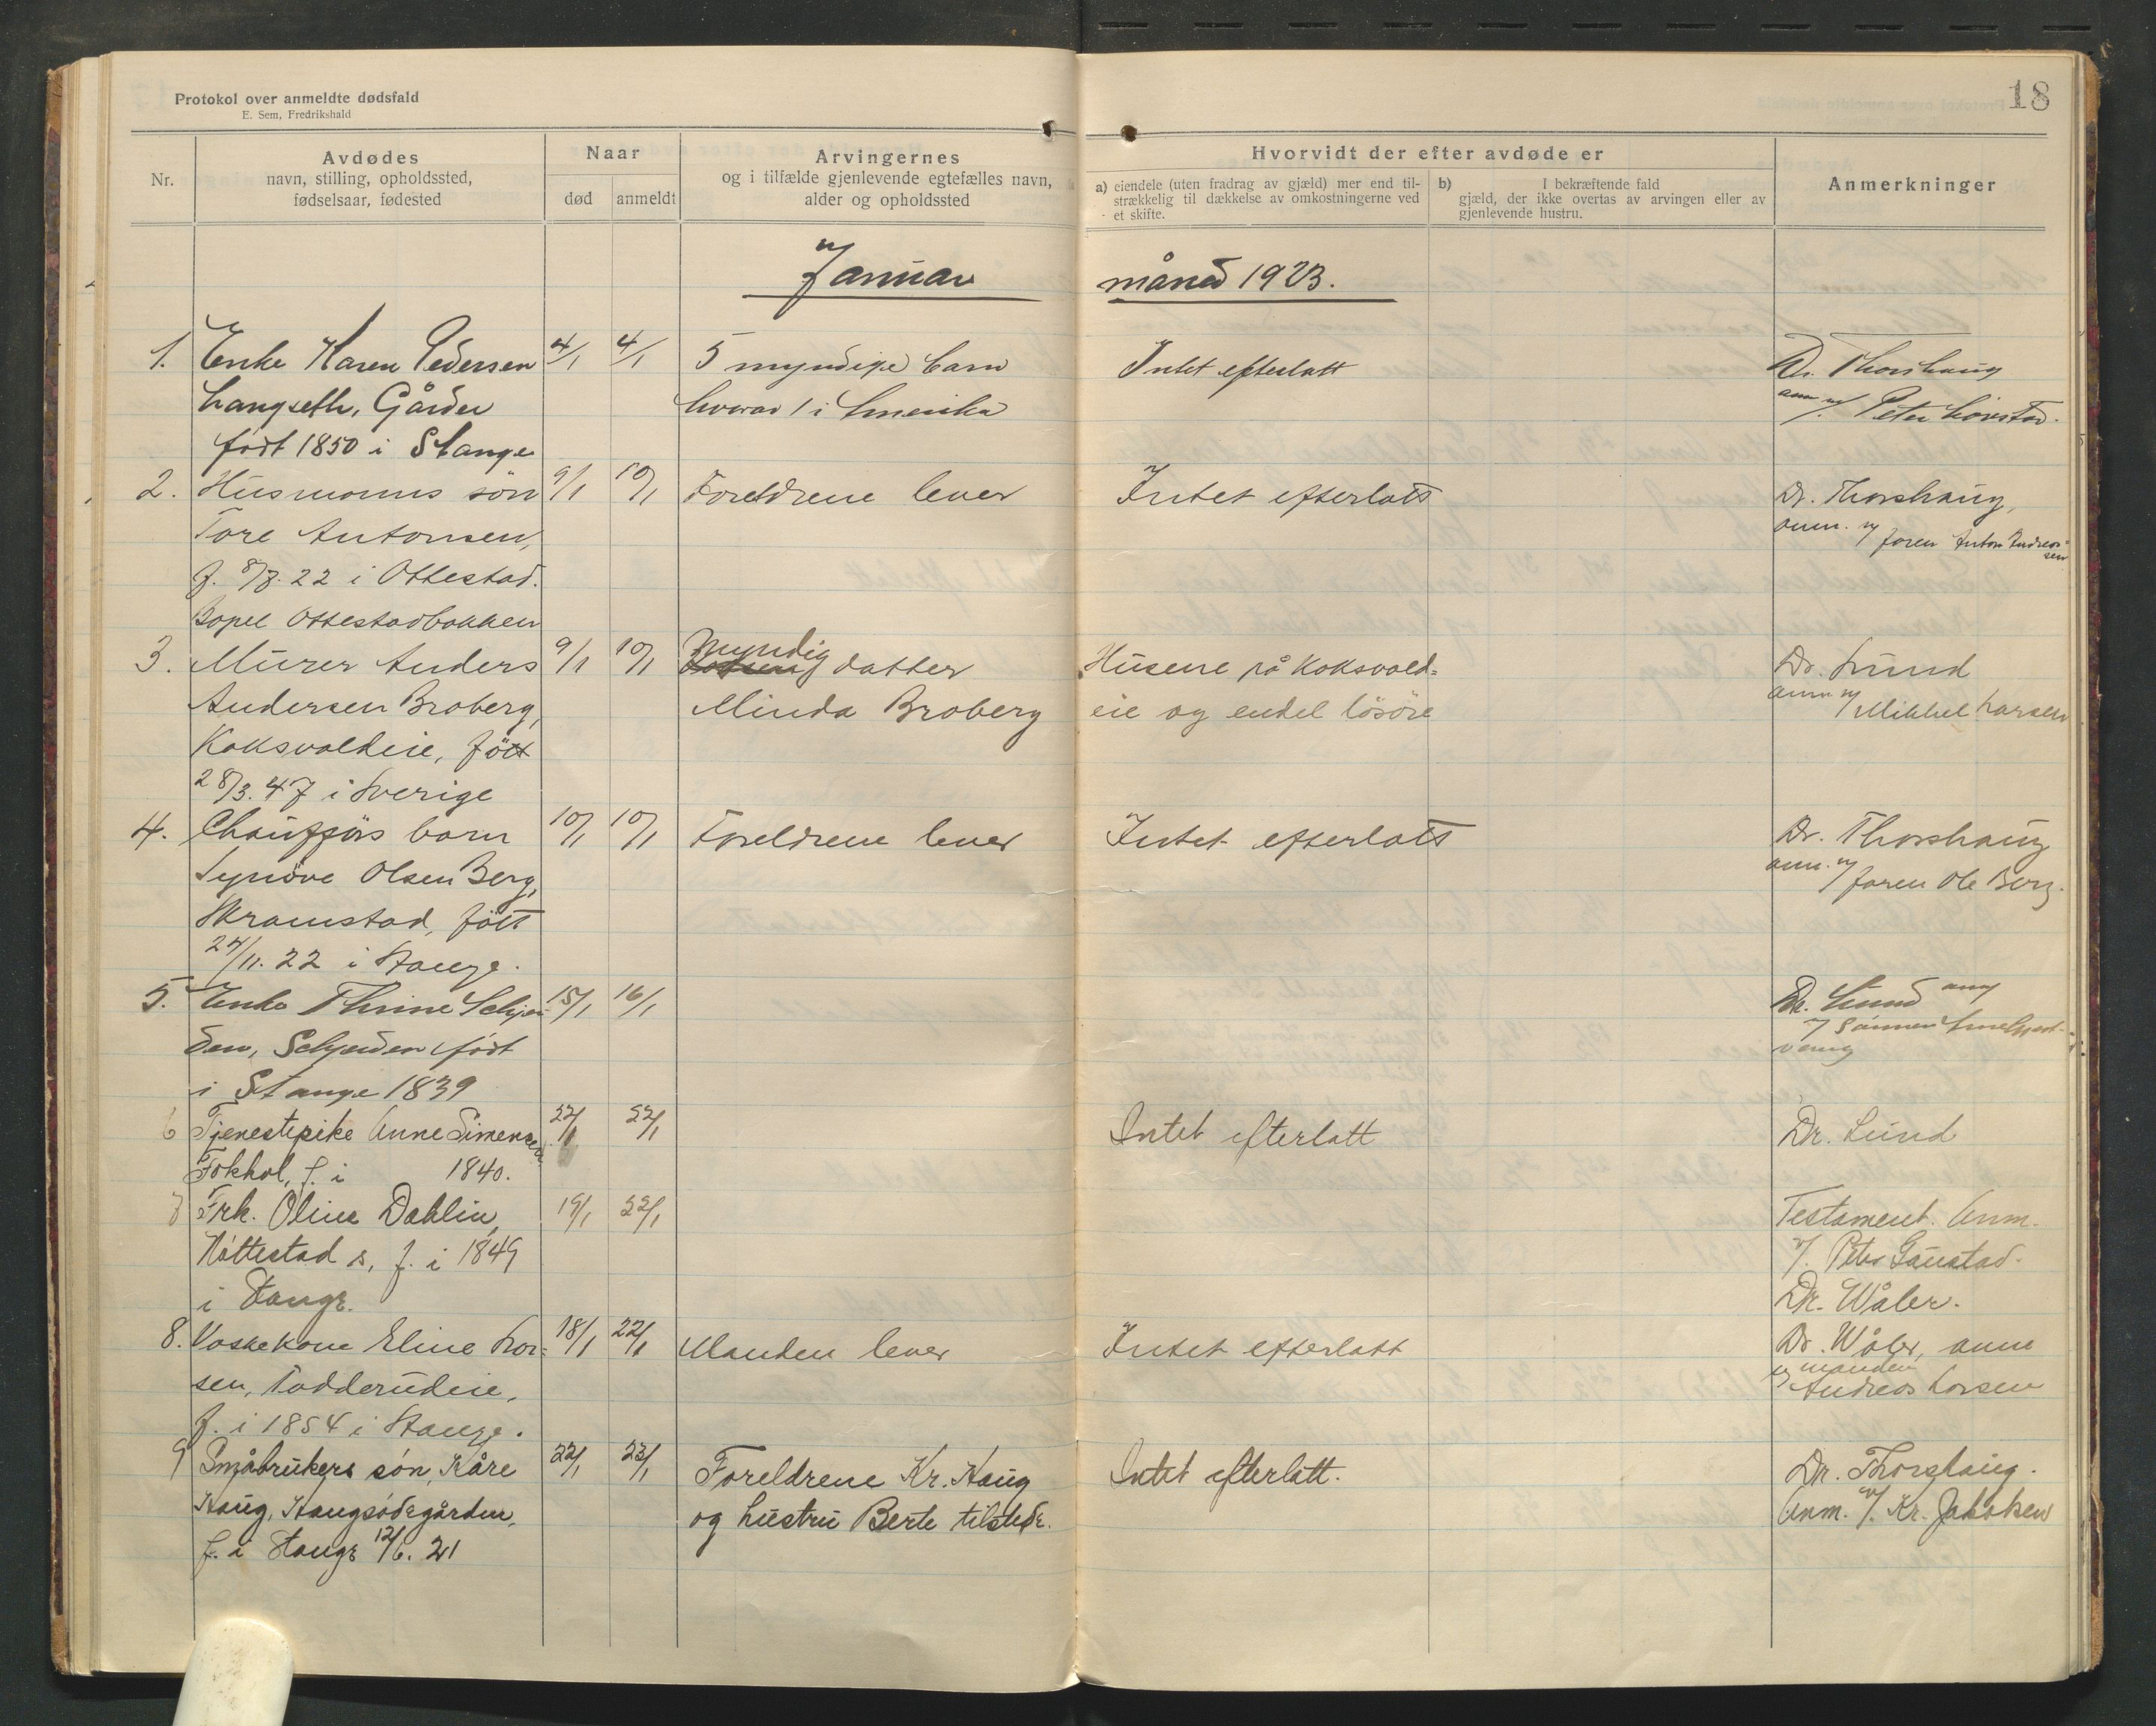 Protokol over anmeldte dødsfald
E. Sem, Fredrikshald
18
Nr.
Avdødes
navn, stilling, opholdssted,
fødselsaar, fødested
Naar
død
anmeldt
Arvingernes
og i tilfælde gjenlevende egtefælles navn,
alder og opholdssted
Hvorvidt der efter avdøde er
a) eiendele (uten fradrag av gjæld) mer end til-
strækkelig til dækkelse av omkostningerne ved
et skifte.
b) I bekræftende fald
gjæld, der ikke overtas av arvingen eller av
gjenlevende hustru.
Anmerkninger
Januar måned 1923.
1. Enke Karen Pedersen 4/1 4/1 5 myndige barn Intet efterlatt Dr. Thorshaug
Langseth, Gårder hvorav 1 i Amerika anm v/. Peter Lövstad.
født 1850 i Stange
2. Husmanns sön 9/1 10/1 Foreldrene lever Intet efterlatt Dr. Thorshaug,
Tore Antonsen, anm. v/ faren Anton Andreas-
sen
f. 8/8. 22 i Ottestad.
Bopel Ottestadbakken
3. Murer Anders 9/1 10/1 Myndig datter Husene på Koksvold- Dr. Lund
Andersen Broberg, Minda Broberg eie og endel lösöre anm v/ Mikkel Larsen
Koksvoldeie, fött
28/3. 47 i Sverige
4. Chaufförs barn 10/1 10/1 Foreldrene lever Intet efterlatt Dr. Thorshaug
Synöve Olsen Berg, anm. v/ faren Ole Berg.
Skramstad, fött
24/11. 22 i Stange.
5. Enke Thrine Schjer- 15/1 16/1 Dr. Lund anm
den, Schjerden født v/ sönnen
i Stange 1839
6 Tjenestepike Anne Simensen 22/1 22/1 Intet efterlatt Dr. Lund
Fokhol, f. i 1840.
7 Frk. Oline Dahlin, 19/1 22/1 Testament. Anm.
Hóttestad s, f. i 1849 v/. Peter Gaustad.
i Stange. Dr. Wåler.
8. Vaskekone Eline Lar- 18/1 22/1 Manden lever Intet efterlatt Dr. Wåler, anm
sen, Todderudeie, v/ manden Andreas Larsen
f. i 1854 i Stange.
9 Småbrukers són, Kåre 22/1 23/1 Foreldrene Kr. Haug Intet efterlatt. Dr. Thorshaug.
Haug, Haugsódegården, og hustru Berte tilstede. Anm. v/. Kr. Jakobsen
f. i Stange 12/6. 21